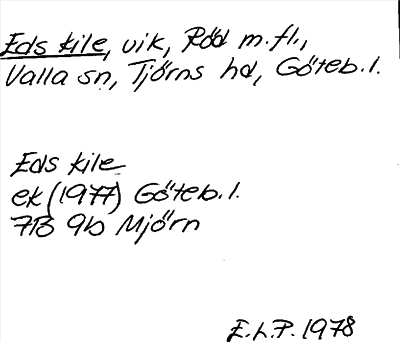 Eds kile, vik, Röd m.fl.,
Valla sn, Tjörns hd, Göteb.l.
Eds kile
ek (1977) Göteb.l.
7B 9b Mjörn
E.L.P. 1978